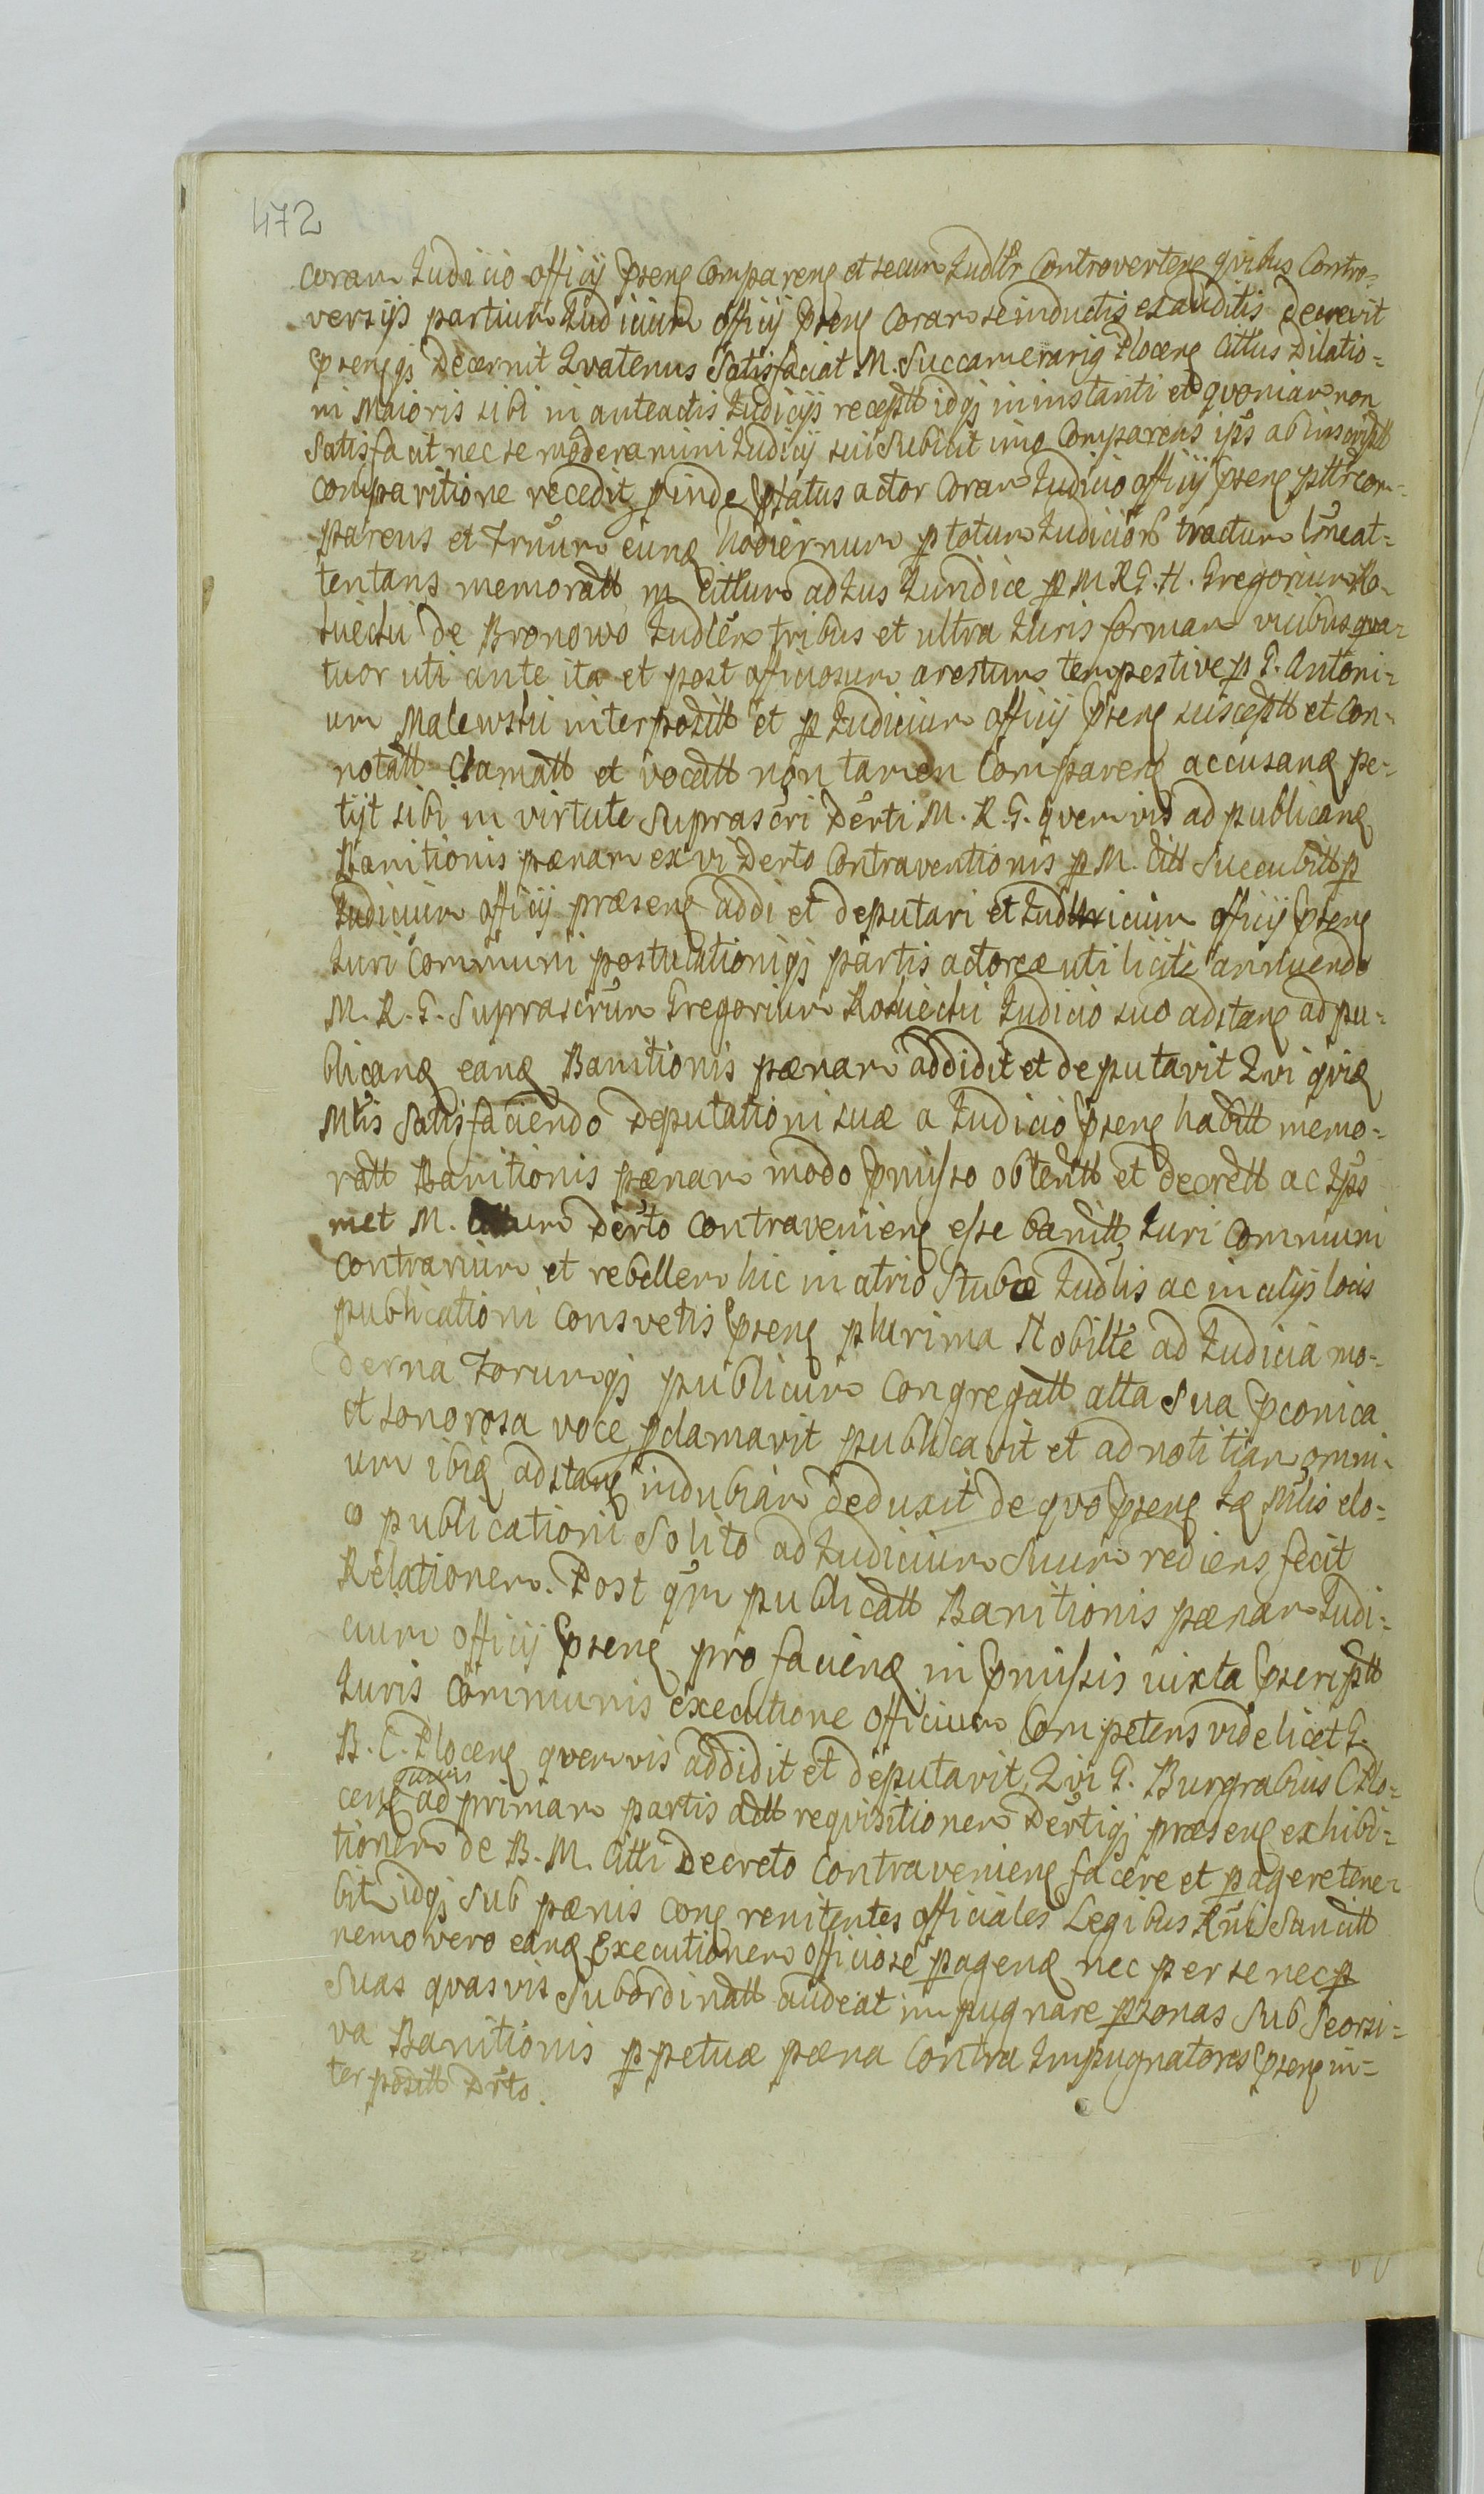 472
coram Judicio officij pseng compareng et secum Judltr Controverteng qvibus Contro=
versijs partium Judicium officij pseng coram se inductis exauditis Decrevit
psengqj Decernit Qvatenus Satisfaciat M. Succamerarig Ploceng Cittus Dilatio=
ni Maioris sibi in anteactis Judicijs receptt idqj in instanti et qvoniam non
Satisfacit nec se moderamini Judicij sui Subicit imo Comparens ips ab
comparitione recedit pinde pfatus actor coram Judicio officij pseng com=
parens et eung hodiernum p totum Judicior tractum at=
tentans memoratt M Cittum ad Jus Juridice p M R G. H. Gregorium Ko=
de Bronowo Judlem tribus et ultra Juris formam vicibus qva=
tuor uti ante ita et post officiosum arestum tempestive p G. Antoni=
um Malewski interpositt et p Judicium officij pseng susceptt et Con=
notatt Clamatt et vocatt non tamen Compareng accusang pe=
tijt sibi in virtute Suprascri Derti M. R. G. qvemvis ad publicang
Banitionis pænam ex vi Derto Contraventionis p M. Citt Succubitt p
Judicium officij præseng addi et deputari et Judicium officij pseng
Juri Communi postulationiqj partis actoreæ uti licite annuendo
M. R. G. Suprascrum Gregorium Judicio suo adstang ad pu=
blicang eang Banitionis pænam addidit et deputavit Qvi qvig
Mtis Satisfaciendo Deputationi suæ a Judicio pseng habitt memo=
ratt Banitionis pænam modo pmisso obtentt et decrett ac Ips
met M. Cittum Derto contravenieng esse banitt Juri communi
contrarium et rebellem hic in atrio Stubæ Judlis ac in alijs locis
publicationi consvetis pseng plurima Nobilte ad Judicia mo=
derna Forumqj publicum congregatt alta Sua pconica
et sonorosa voce pclamavit publicavit et ad notitiam omni=
um ibig adstang indubiam deduxit de qvo pseng Mlis elo=
o publicationi Solito ad Judicium Suum rediens fecit
Relationem. Post qm publicatt Banitionis pænam Judi=
cium officij pseng pro facieng in pmissis iuxta pscriptt
Juris Communis executione officium Competens videlicet G.
B. C. Ploceng qvemvis addidit et deputavit Qvi G. Burgrabius C Plo=
ceng ad primam partis actt reqvisitionem Dertiqj præseng exhibi=
tionem de B. M. Citti Decreto contravenieng facere et pagere tene=
bit idqj sub pænis cong renitentes officiales Legibus Rni Sancitt
nemo vero eang Executionem officiose pageng nec per se nec p
Suas qvasvis Subordinatt audeat impugnare psonas Sub Seorsi=
va Banitionis ppetuæ pæna contra Impugnatores pseng in=
terpositt Drto.